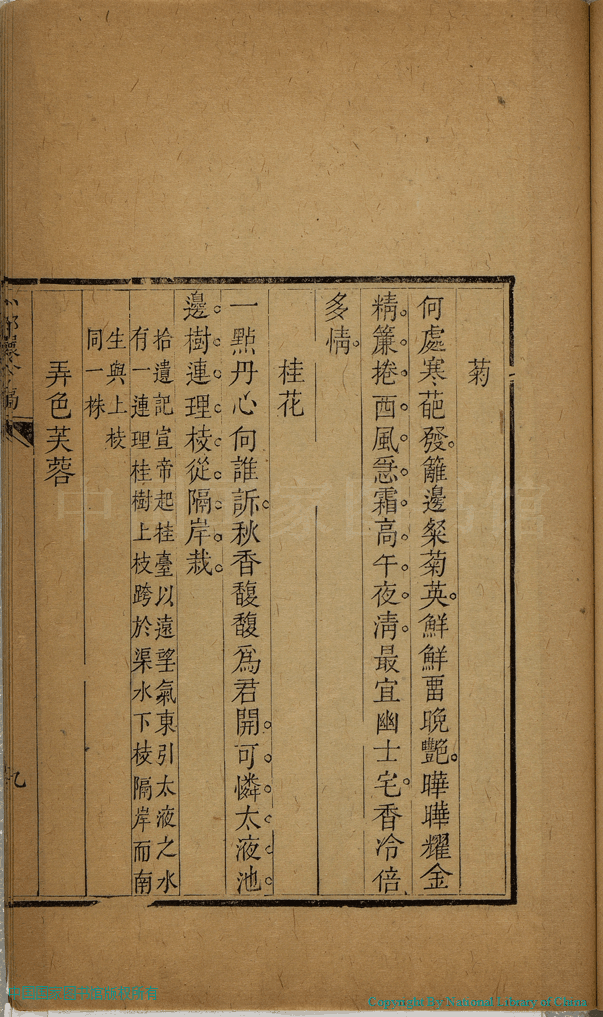 菊
何處寒葩發籬邊粲菊英鮮鮮畱晚艷曄曄耀金
精簾捲西風急霜高午夜淸最宜幽士宅香冷倍
多情
桂花
一點丹心向誰訴秋香馥馥爲君開可憐太液池
邊樹連理枝從隔岸栽
拾遺記宣帝起桂臺以遠望氣東引太液之水
有一連理桂樹上枝跨於渠水下枝隔岸而南
生與上枝
同一株
弄色芙蓉
九
中國國家圖書館
Copyright By National Library of China